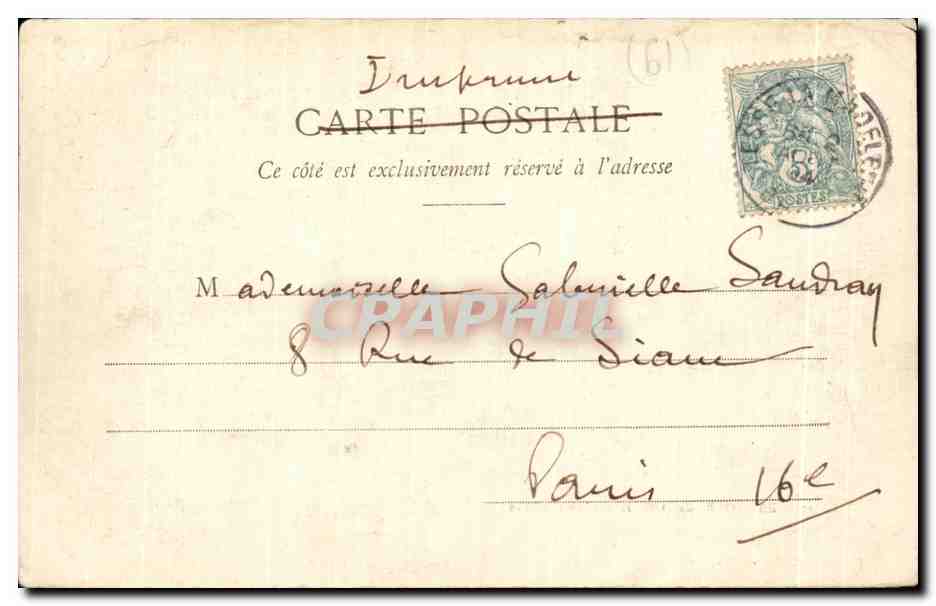 (61)
Imprimé
CARTE POSTALE
Ce côté est exclusivement réservé à l'adresse
5c
POSTES
Mademoiselle Gabrielle Sandray
CRAPHIL
8 Rue de Siam
Paris 16e